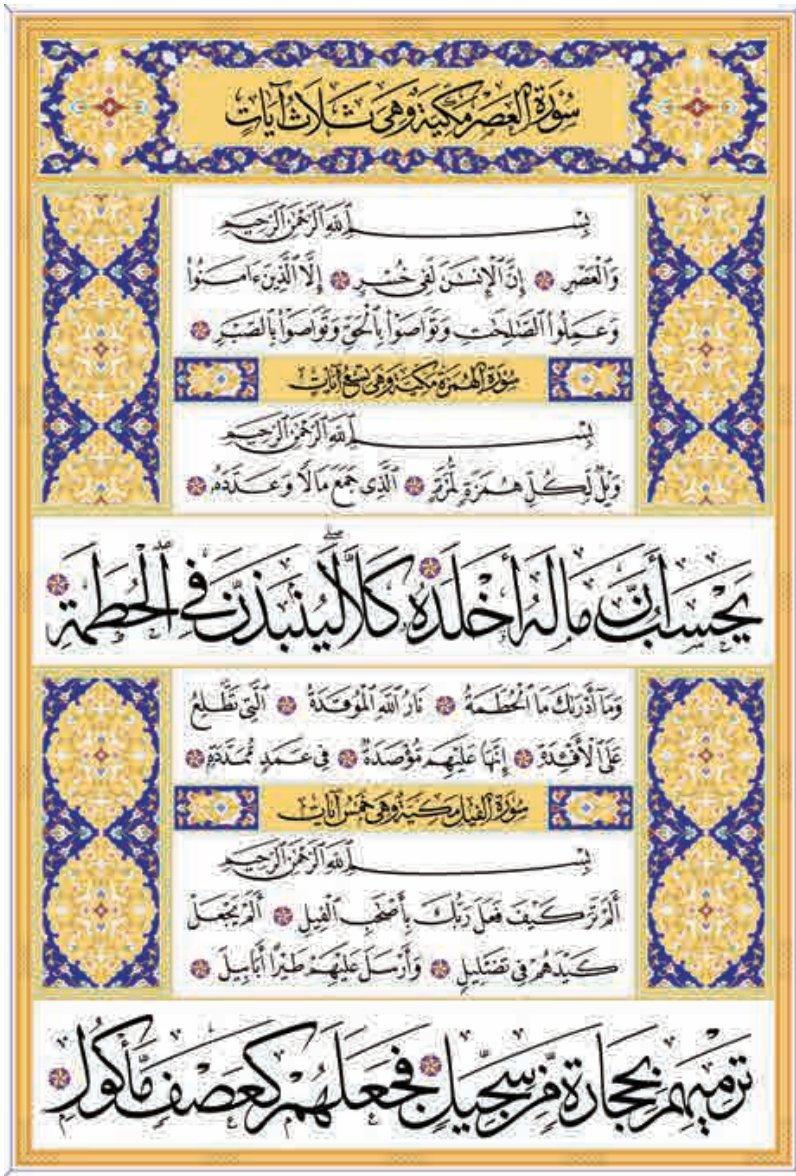 سُورَةُ الْعَصْرِ مَكِّيَّةٌ وَهِيَ ثَلَاثُ آيَاتٍ
بِسْمِ ٱللَّهِ ٱلرَّحْمَٰنِ ٱلرَّحِيمِ
وَٱلْعَصْرِ ۞ إِنَّ ٱلْإِنسَٰنَ لَفِى خُسْرٍ ۞ إِلَّا ٱلَّذِينَ ءَامَنُوا۟
وَعَمِلُوا۟ ٱلصَّٰلِحَٰتِ وَتَوَاصَوْا۟ بِٱلْحَقِّ وَتَوَاصَوْا۟ بِٱلصَّبْرِ ۞
سُورَةُ الْهُمَزَةِ مَكِّيَّةٌ وَهِيَ تِسْعُ آيَاتٍ
بِسْمِ ٱللَّهِ ٱلرَّحْمَٰنِ ٱلرَّحِيمِ
وَيْلٌ لِّكُلِّ هُمَزَةٍ لُّمَزَةٍ ۞ ٱلَّذِى جَمَعَ مَالًا وَعَدَّدَهُۥ ۞
يَحْسَبُ أَنَّ مَالَهُۥٓ أَخْلَدَهُۥ ۞ كَلَّا ۖ لَيُنۢبَذَنَّ فِى ٱلْحُطَمَةِ ۞
وَمَآ أَدْرَىٰكَ مَا ٱلْحُطَمَةُ ۞ نَارُ ٱللَّهِ ٱلْمُوقَدَةُ ۞ ٱلَّتِى تَطَّلِعُ
عَلَى ٱلْأَفْـِٔدَةِ ۞ إِنَّهَا عَلَيْهِم مُّؤْصَدَةٌ ۞ فِى عَمَدٍ مُّمَدَّدَةٍۭ ۞
سُورَةُ الْفِيلِ مَكِّيَّةٌ وَهِيَ خَمْسُ آيَاتٍ
بِسْمِ ٱللَّهِ ٱلرَّحْمَٰنِ ٱلرَّحِيمِ
أَلَمْ تَرَ كَيْفَ فَعَلَ رَبُّكَ بِأَصْحَٰبِ ٱلْفِيلِ ۞ أَلَمْ يَجْعَلْ
كَيْدَهُمْ فِى تَضْلِيلٍ ۞ وَأَرْسَلَ عَلَيْهِمْ طَيْرًا أَبَابِيلَ ۞
تَرْمِيهِم بِحِجَارَةٍ مِّن سِجِّيلٍ ۞ فَجَعَلَهُمْ كَعَصْفٍ مَّأْكُولٍۭ ۞